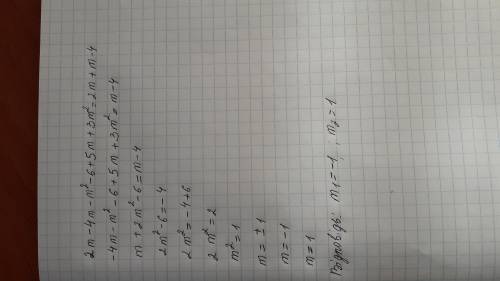 2m-4m-m²-6+5m+3m²=2m+m-4
-4m-m²-6+5m+3m²=m-4
m+2m²-6=m-4
2m²-6=-4
2m²=-4+6
2m²=2
m²=1
m=±1
m=-1
m=1
Відповідь: m₁=-1, m₂=1